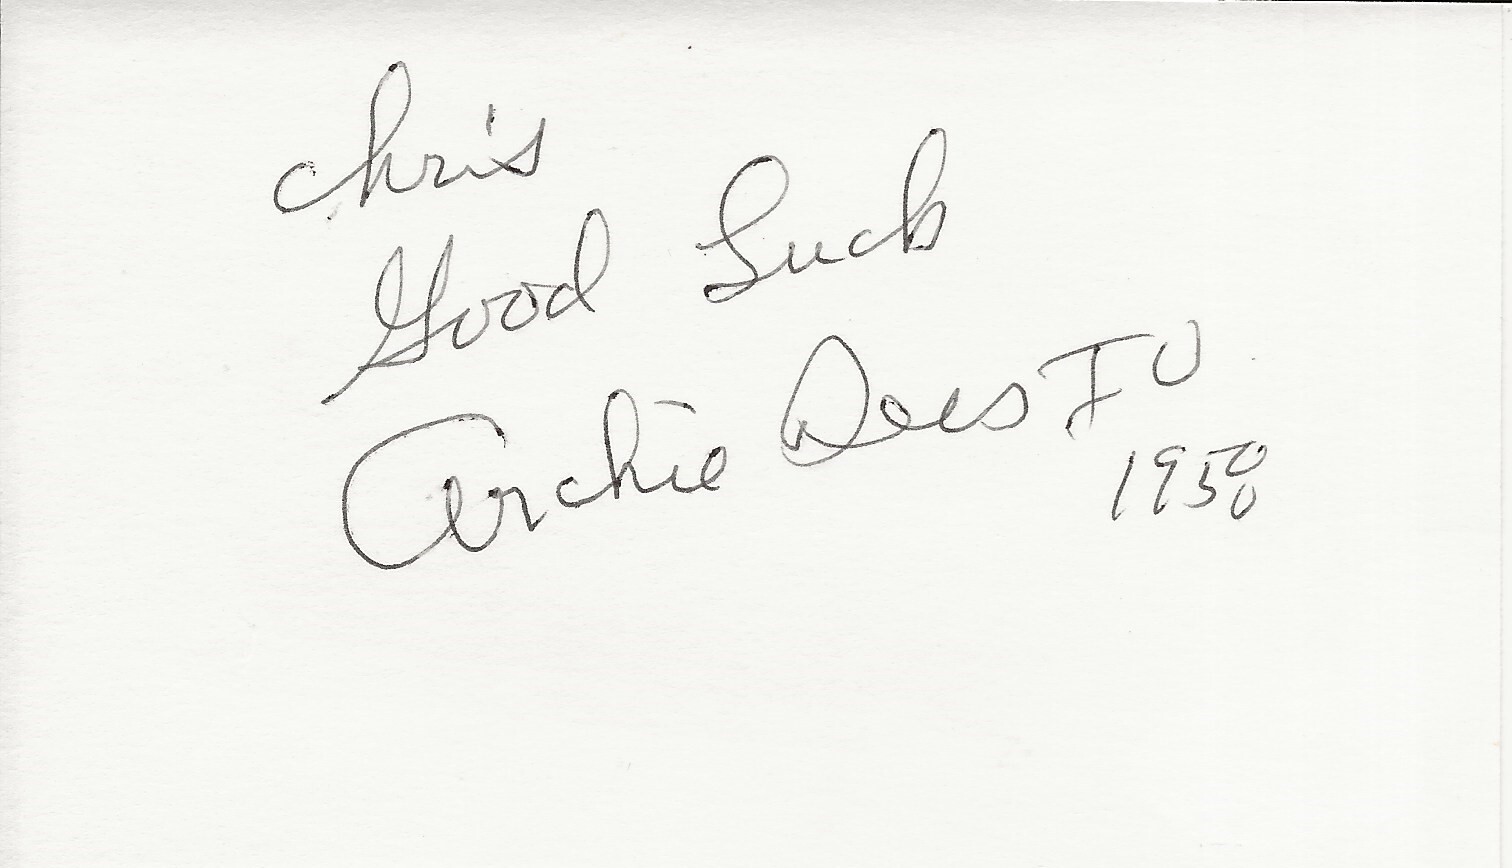 Chris
Good Luck
Archie Dees IU
1958